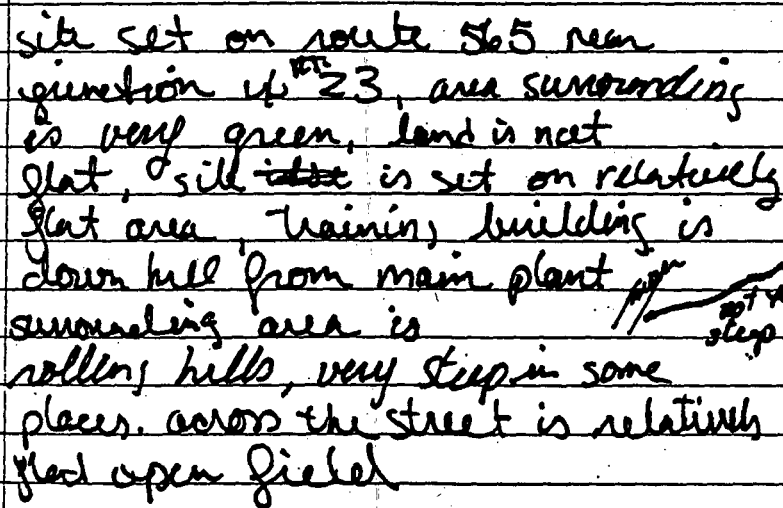 site set on route 565 near
junction w/ RTE 23, area surrounding
is very green, land is not
flat, site is set on relatively
flat area, training building is
down hill from main plant
surrounding area is
not
steep
rolling hills, very steep in some
places. across the street is relatively
flat open field